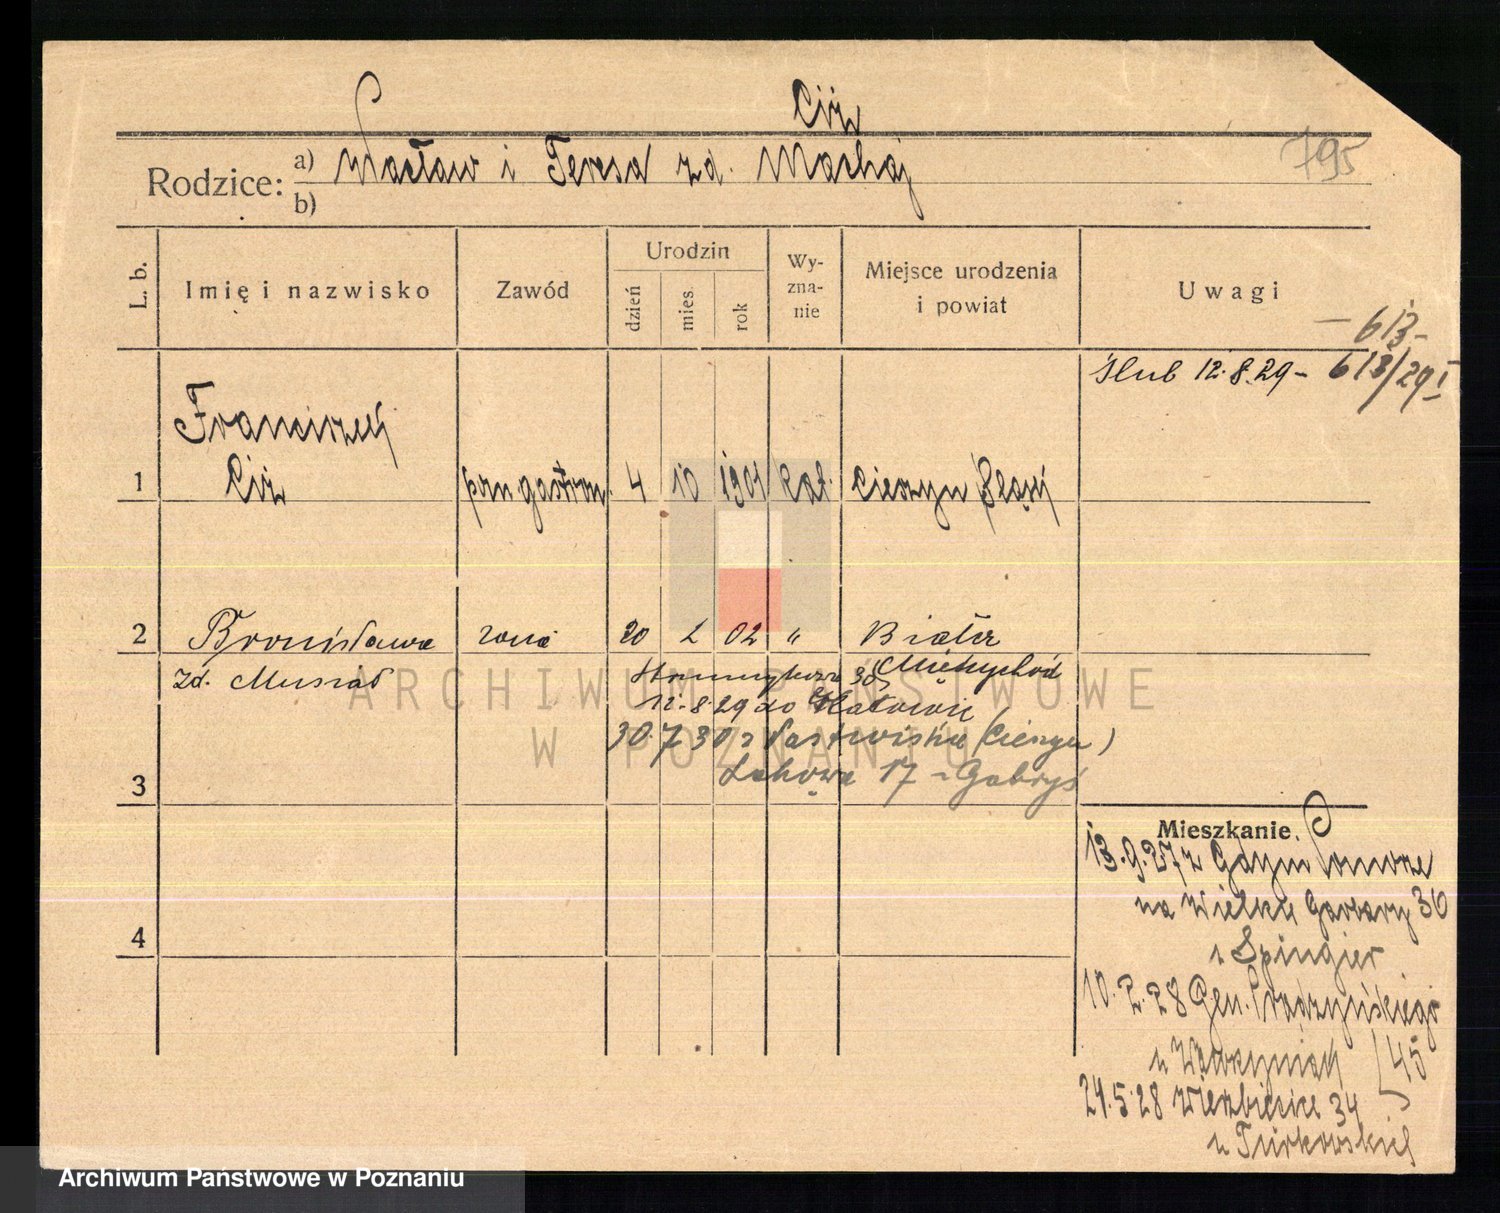 Ciż
Rodzice: a) Wacław i Teresa zd. Machaj
b)
795
L. b.
Imię i nazwisko
Zawód
Urodzin
dzień
mies.
rok
Wy-
zna-
nie
Miejsce urodzenia
i powiat
Uwagi
- 613 -
Ślub 12.8.29 - 613/29 I
Franciszek
1 Ciż gastron. 4 10 1901 kat. Cieszyn Śląsk
2 Bronisława żona 20 2 02 " Biała
zd. Musiał
Międzychód
12.8.29 do Katowic
30.7.30 z Pastwiska (Cieszyn)
Łąkowa 17 - Gabryś
3
Mieszkanie.
13.9.27 z Gdyni Pomorze
na Wielkie Garbary 36
u Spingier
10.2.28 Gen. Prądzyńskiego
u Wawrzyniak 45
24.5.28 Wierzbięcice 34
u Turkowskich
4
ARCHIWUM PAŃSTWOWE
W POZNANIU
Archiwum Państwowe w Poznaniu